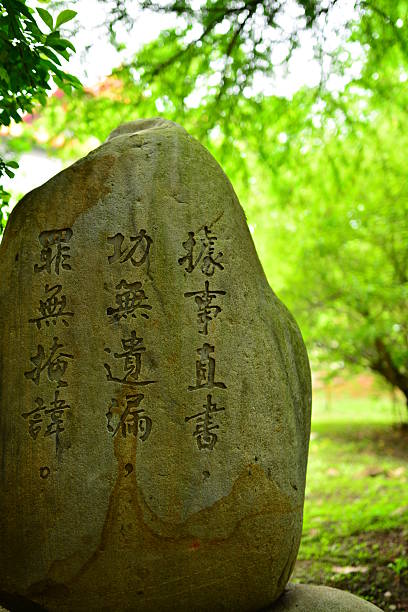 據事直書，
功無遺漏，
罪無掩諱。